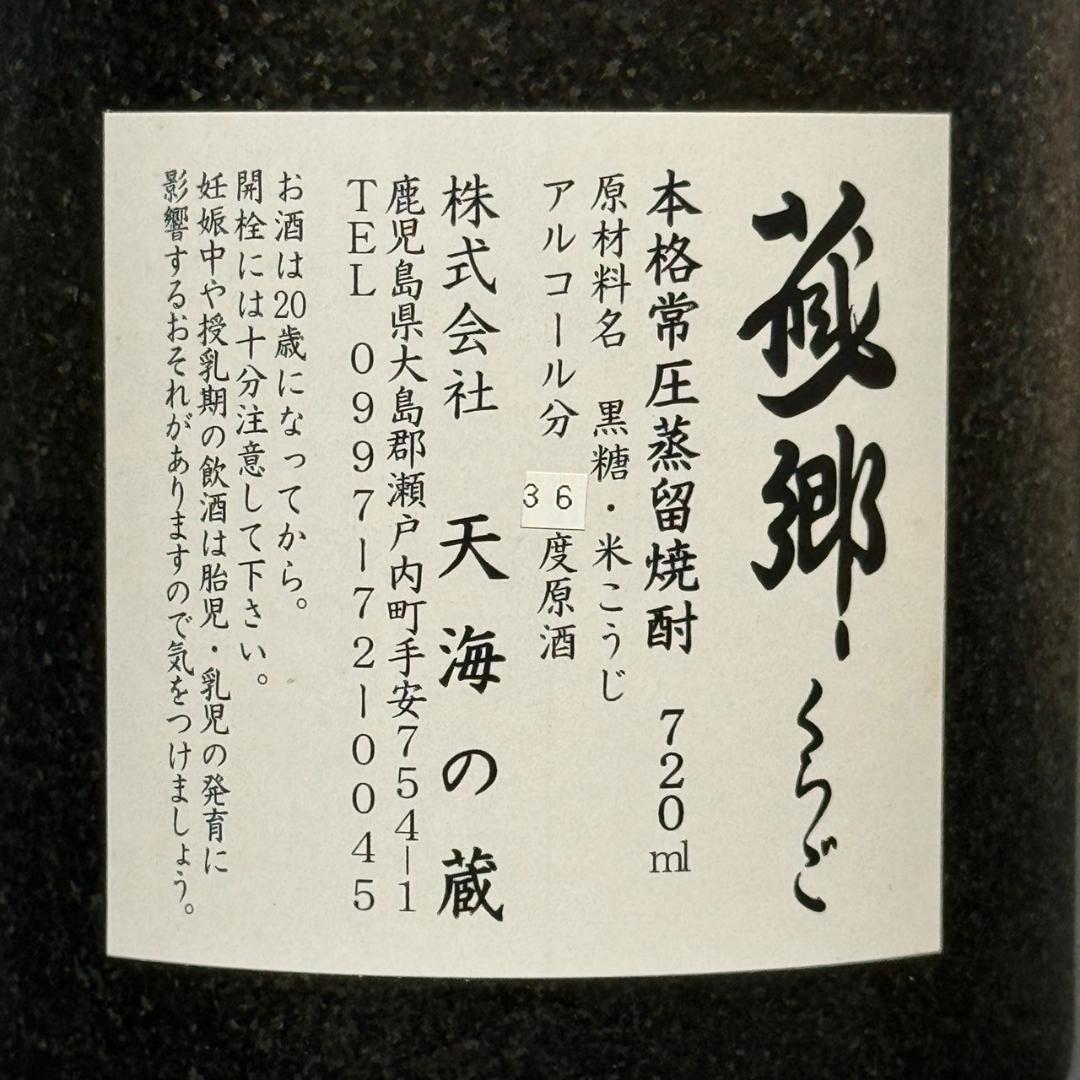 蔵郷 くらご
本格常圧蒸留焼酎 720ml
原材料名 黒糖・米こうじ
アルコール分 36度原酒
株式会社 天海の蔵
鹿児島県大島郡瀬戸内町手安754-1
TEL 0997-72-0045
お酒は20歳になってから。
開栓には十分注意して下さい。
妊娠中や授乳期の飲酒は胎児・乳児の発育に
影響するおそれがありますので気をつけましょう。